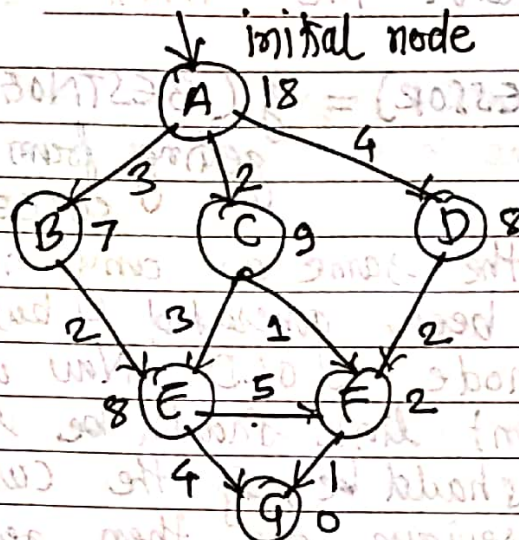 initial node
A 18
3 2 4
B 7 C 9 D 8
2 3 1 2
8 E 5 F 2
4 1
G 0